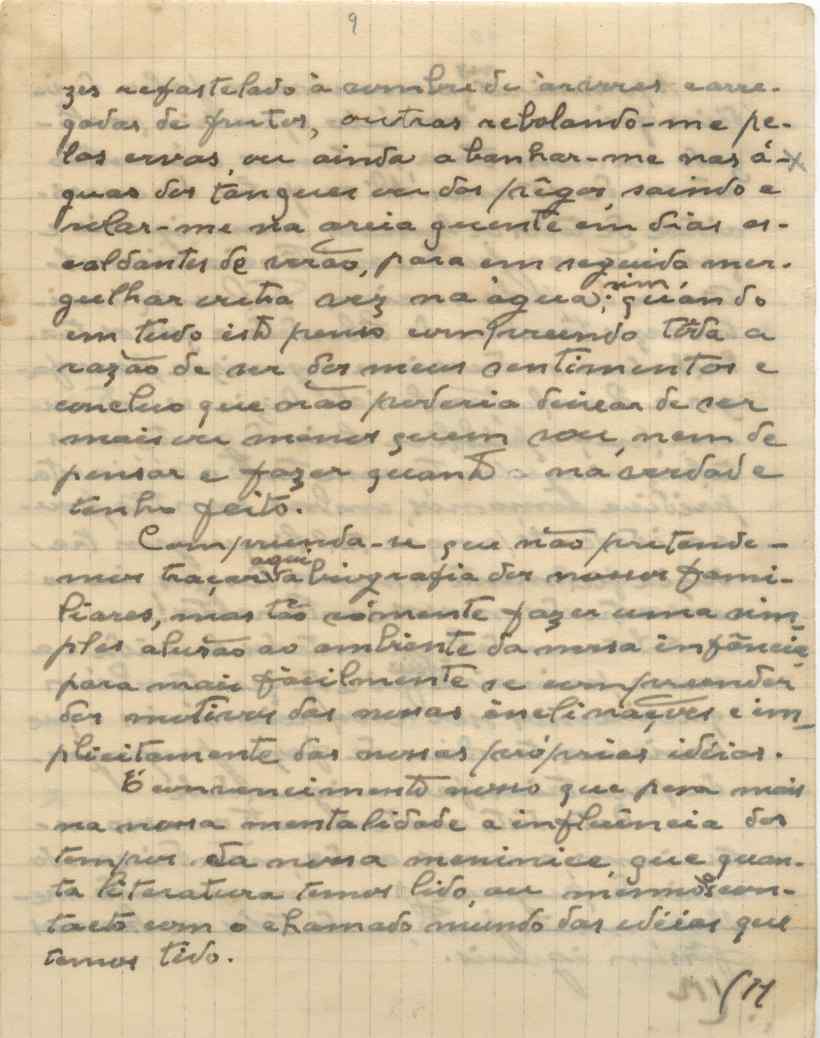 9
zes refastelado à sombra de àrvores carre-
gadas de frutos, outras rebolando-me pe-
las ervas, ou ainda a banhar-me nas á-
guas dos tanques ou dos pêgos, saindo a
rolar-me na areia quente em dias es-
caldantes de verão, para em seguida mer-
gulhar outra vez na àgua; sim, quando
em tudo isto penso compreendo tôda a
razão de ser dos meus sentimentos e
concluo que não poderia deixar de ser
mais ou menos quem sou, nem de
pensar e fazer quanto na verdade
tenho feito.
Compreenda-se que não pretende-
mos traçar aqui a biografia dos nossos fami-
liares, mas tão sómente fazer uma sim-
ples alusão ao ambiente da nossa infância,
para mais fàcilmente se compreender
dos motivos das nossas inclinações e im-
plicitamente das nossas próprias idéias.
É convencimento nosso que pesa mais
na nossa mentalidade a influência dos
tempos da nossa meninice, que quan-
ta literatura temos lido, ou mesmo o con-
tacto com o chamado mundo das idéias que
temos tido.